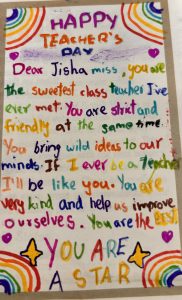 HAPPY
TEACHER'S
DAY
Dear Jisha miss, you are
the sweetest class teacher I've
ever met. You are strict and
friendly at the same time.
You bring wild ideas to our
minds. If I ever be a teacher
I'll be like you. You are
very kind and help us improve
ourselves. You are the BEST.
YOU ARE
A STAR